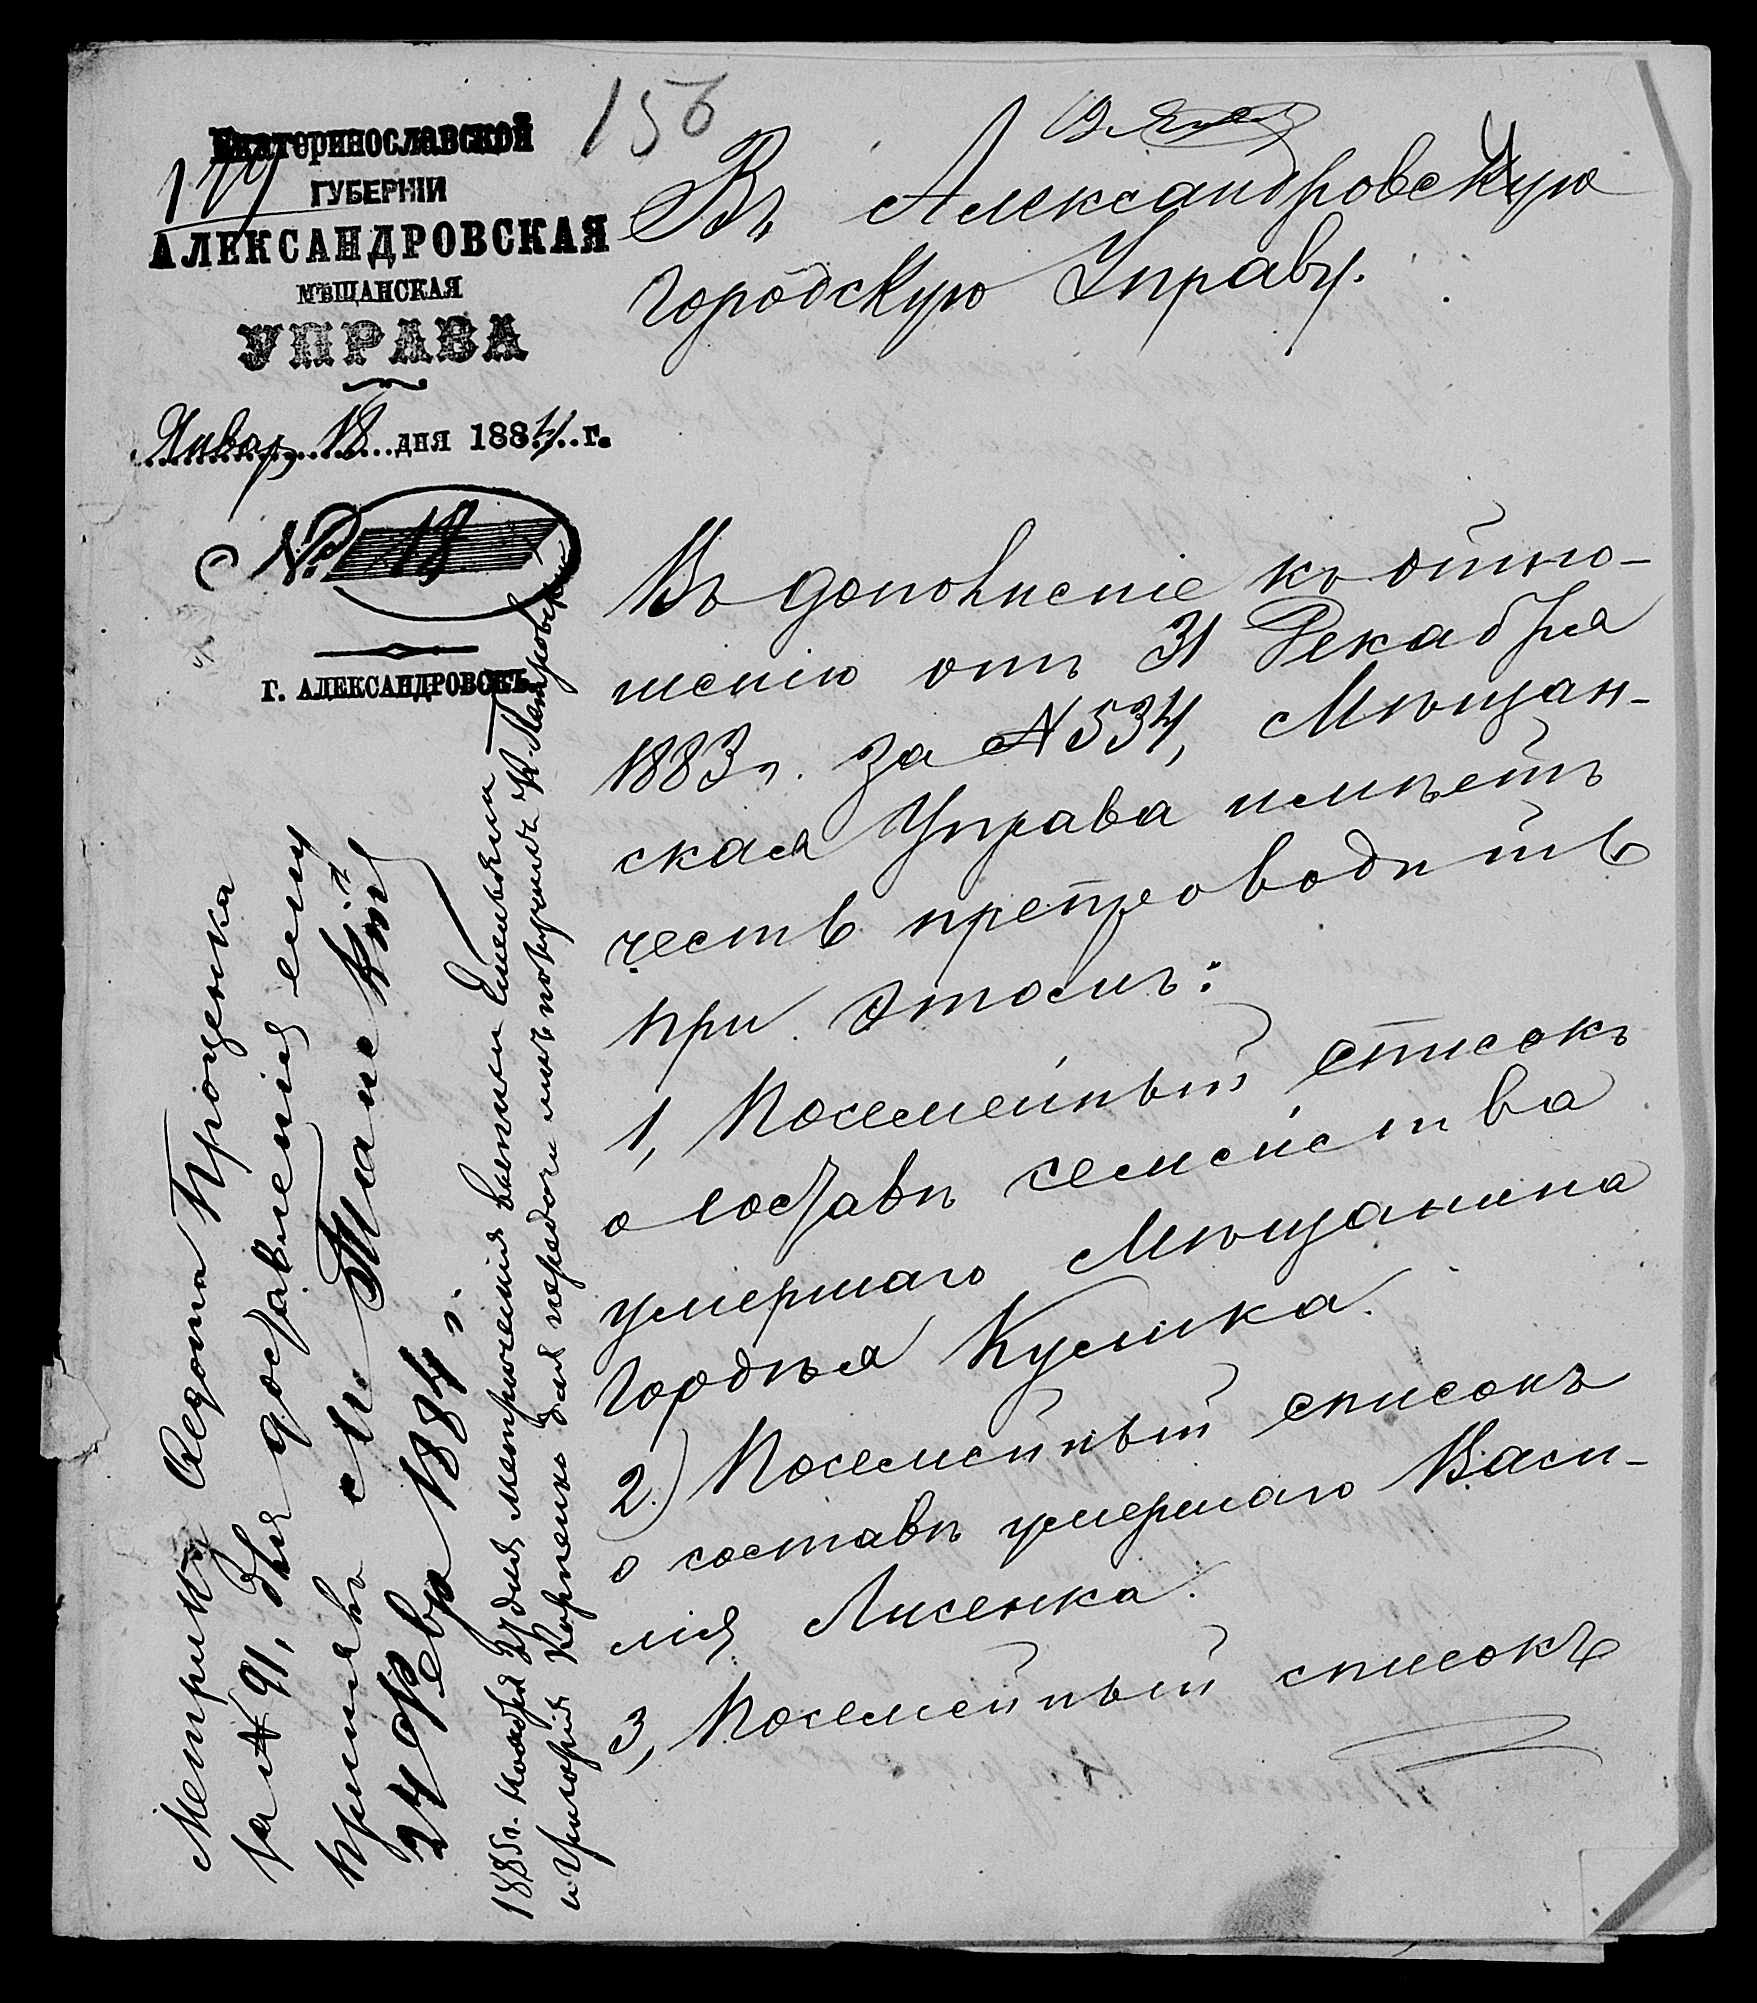 156
Екатеринославской
ГУБЕРНІИ
АЛЕКСАНДРОВСКАЯ
МѢЩАНСКАЯ
УПРАВА
Январ. 18 дня 1884 г.
№ 18
г. АЛЕКСАНДРОВСКЪ.
Въ Александровскую
городскую Управу.
Въ дополненіе къ отно-
шенію отъ 31 Декабря
1883 г. за № 534, Мѣщан-
ская Управа имѣетъ
честь препроводить
при этомъ:
1, Посемейный списокъ
о составѣ семейства
умершаго Мѣщанина
Гордѣя Кулика.
2.) Посемейный списокъ
о составѣ умершаго Васи-
лія Лисенка.
3, Посемейный списокъ
Метрику Федота Проценка
за № 91, для доставленія ему
принялъ
24 Февр 1884 г.
1885 г. Ноября метрическія выписки Емельяна
и Григорія Корненко для передачи имъ получилъ